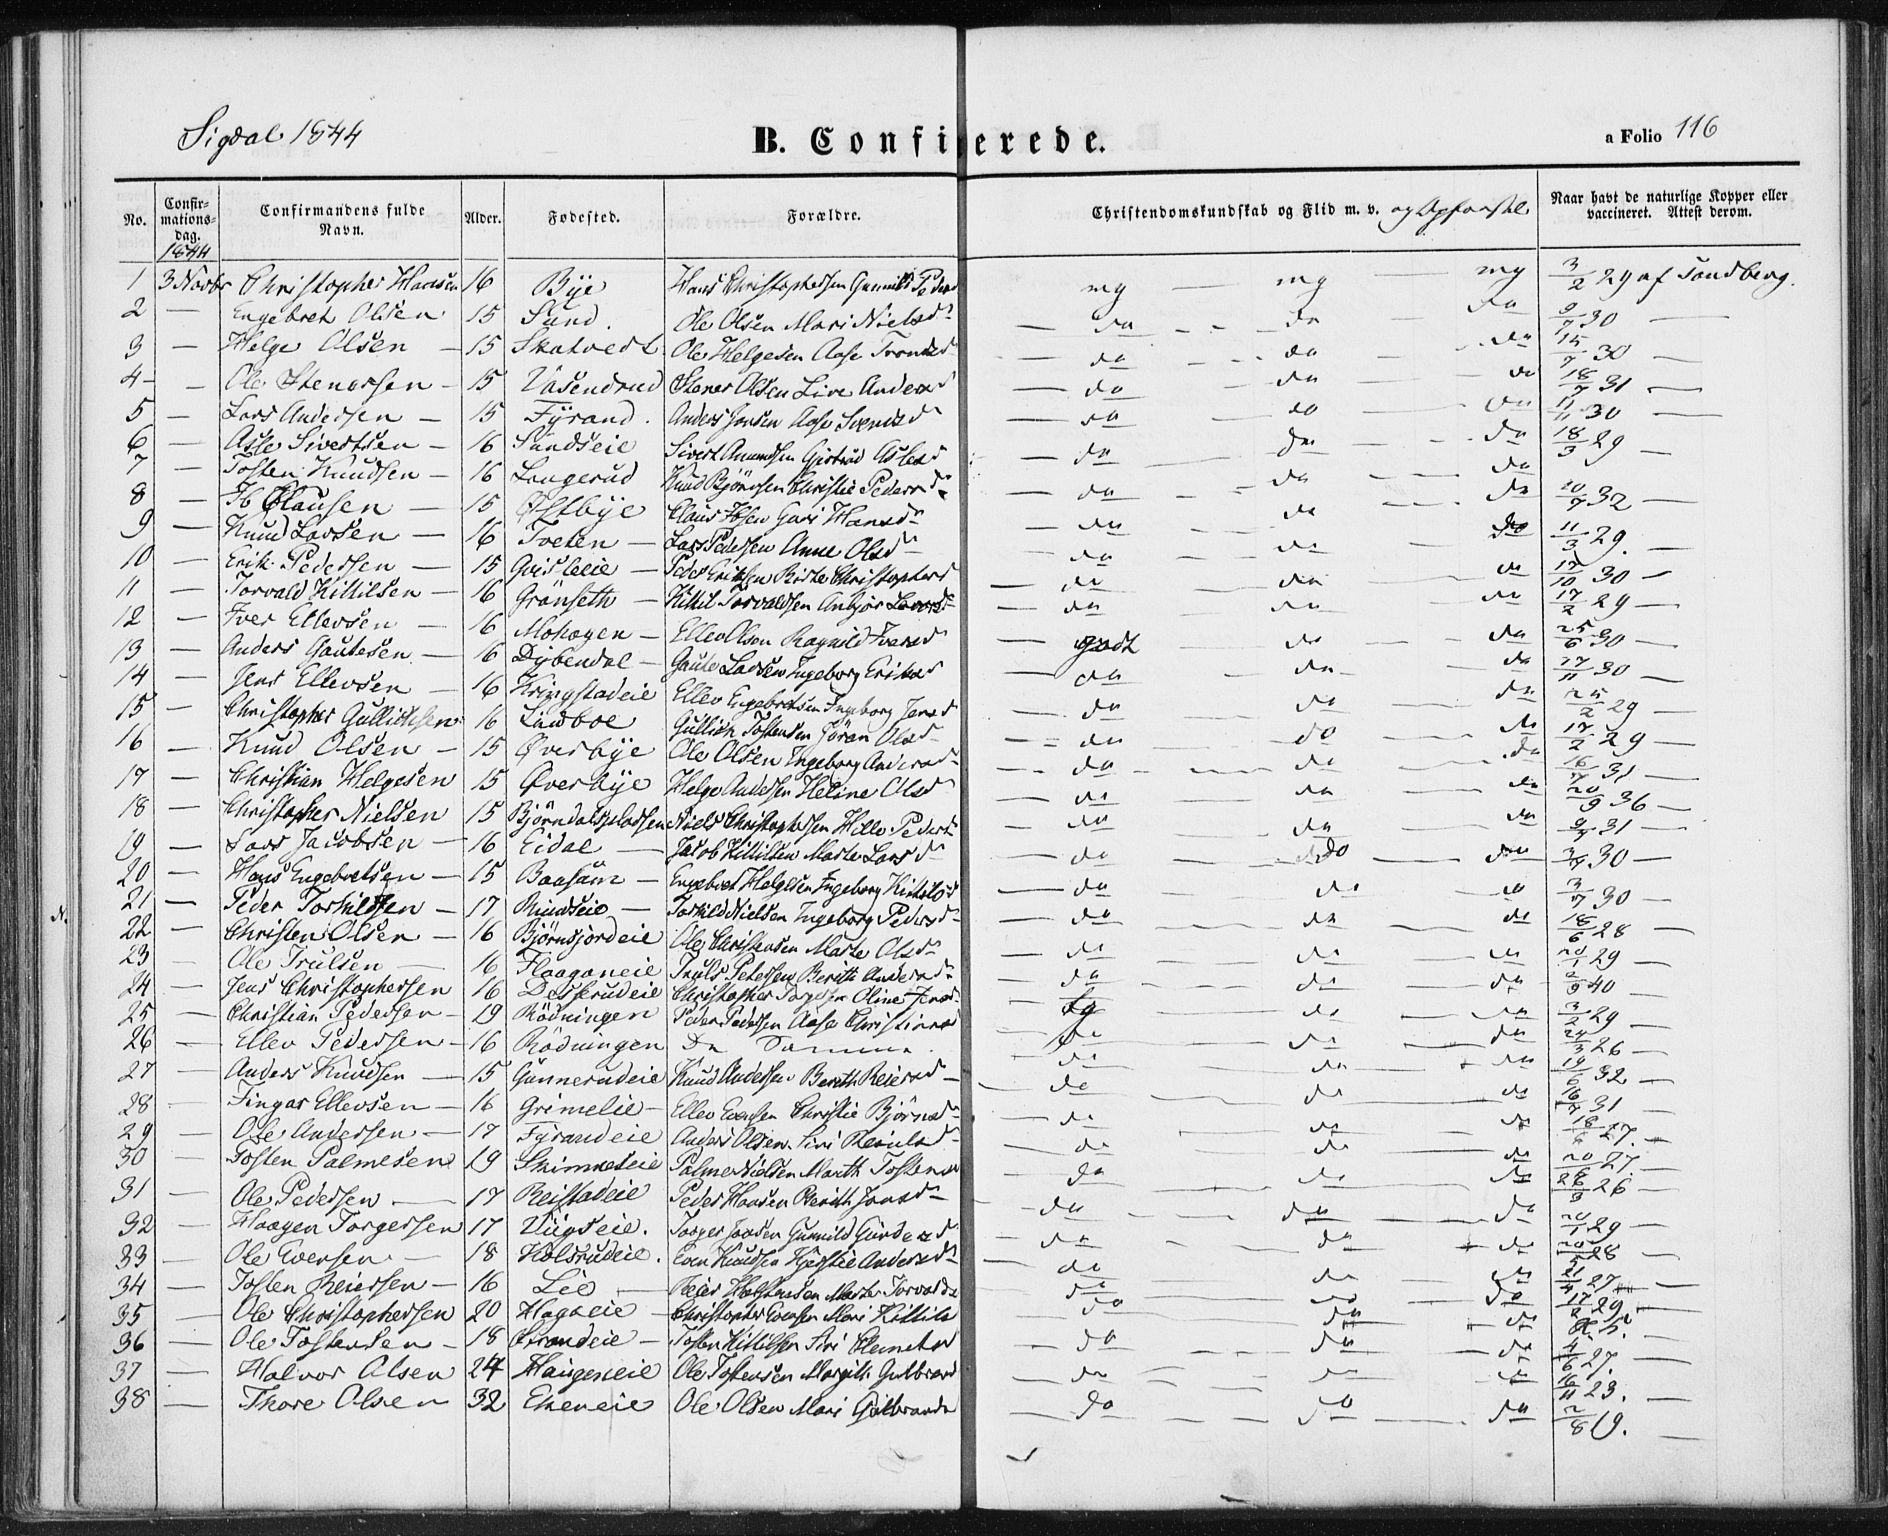 Sigdal 1844
B. Confirmerede.
a Folio 116
No. Confirmationsdag. Confirmandens fulde Navn. Alder. Fødested. Forældre. Christendomskundskab og Flid m. v. og Opførsel Naar havt de naturlige Kopper eller vaccineret. Attest derom.
1844
1 3 Novbr Christopher Hansen 16 Bye Hans Christophersen Gunnild Pedersd mg — mg — mg 3/2 29 af Sandberg.
2 — Engebret Olsen 15 Sund. Ole Olsen Mari Nielsd — da - - da da 9/7 30 —
3 — Helge Olsen — 15 Skatvedt Ole Helgesen Aase Trondsd — da - - da - da 15/7 30 —
4 - — Ole Stenersen — 15 Vasendrud Stener Olsen Live Andersd — da da da 18/7 31 —
5 — Lars Andersen — 15 Fyrand. Anders Jonsen Aase Svendsd — da da da 11/11 30 —
6 — Asle Sivertsen — 16 Sundseie Sivert Amundsen Gjertrud Aslesd — da — da - - da 18/3 29 —
7 — Tosten Knudsen — 16 Langerud Knud Bjørnsen Christie Pedersd — da - - da - - da 20/7 32 —
8 — Ib Clausen — 15 Østbye Claus Ibsen Guri Hansd — da - da da
9 — Knud Larsen — 16 Tveten — Lars Pedersen Anne Olsd — da — da — da 11/3 29. —
10 — Erik Pedersen — 15 Gvisleeie — Peder Eriksen Birte Christophersd — da — da — da 17/10 30 —
11 — Torvald Kittilsen — 16 Grønseth — Kittil Torvaldsen Anbjør Larsd — da — da — da 17/2 29 —
12 — Iver Ellevsen — 16 Mohagen — Ellev Olsen Ragnild Iversd — godt — da — da 25/6 30 —
13 — Anders Gautesen — 16 Dybendal — Gaute Larsen Ingeborg Eriksd — da — da — da 17/11 30 —
14 — Jens Ellevsen — 16 Kringstadeie Ellev Engebretsen Ingeborg Jensd — da — da — da 25/2 29 —
15 — Christopher Gullichsen 16 Lindboe Gullich Tostensen Jöran Olsd — da — do — da 17/2 29 —
16 — Knud Olsen — 15 Øverbye Ole Olsen Ingeborg Andersd — da — da — da 16/7 31 —
17 — Christian Helgesen 15 Øverbye Helge Andersen Heline Olsd — da — da — da 20/9 36 —
18 — Christopher Nielsen 15 Björndalspladsen Niels Christophersen Helle Pedersd — da — da — da 9/7 31 —
19 — Lars Jacobsen — 16 Eidal — Jacob Kittilsen Marte Larsd — da — do — da 3/7 30 —
20 — Hans Engebretsen — 15 Baasum — Engebret Helgesen Ingeborg Kittilsd — da — da — da 3/7 30 —
21 — Peder Torkildsen — 17 Rundseie — Torkild Nielsen Ingeborg Pedersd — da — da — da 18/6 28 —
22 — Christen Olsen — 16 Björnsjordeie Ole Christensen Marte Olsd — da — da — da 20/1 29 —
23 — Ole Trulsen — 16 Haaganeie Truls Petersen Beritt Andersd — da — da — da 2/9 40 —
24 — Jens Christophersen 16 Desserudeie Christopher Oline Jensd — tg — da — da 3/2 29 —
25 — Christian Pedersen — 19 Rödningen Peder Pedersen Aase Christiansd — da — da — da 24/3 26 —
26 — Ellev Pedersen — 16 Rödningen De Samme. — da — da — da 19/6 32 —
27 — Anders Knudsen — 15 Gunnerudeie Knud Andersen Berith Reiersd — da — da — da 16/7 31 —
28 — Fingar Ellevsen — 16 Grimelie — Ellev Evensen Christie Björnsd — da — da — da 18/6 27. —
29 — Ole Andersen — 17 Fyrandeie Anders Olsen Siri — da — da — da 20/ 27 —
30 — Tosten Palmesen 19 Skimneseie Palme Nielsen Marith Tostensd — da — da — da 26/9 26 —
31 — Ole Pedersen — 17 Reistadeie Peder Hansen Berith Jonsd — da — da — da 20/1 29 —
32 — Haagen Torgersen 17 Viigseie. Torger Gunnild Gundersd — da — da — da 20/5 28 —
33 — Ole Evensen — 18 Holsrudeie. Even Knudsen Kjerstie Andersd — da — da — da 21/ 27 —
34 — Tosten Reiersen — 16 Lie — Reier Marte Torvaldsd — da — da — da 17/2 29 —
35 — Ole Christophersen 20 Hagaeie — Christopher Evensen Mari Kittilsd — da — da — da
36 — Ole Tostensen — 18 Strandeie — Tosten Kittilsen Siri — da — da — da 4/6 27. —
37 — Halvor Olsen 24 Haugeneie Ole Tostensen Margith Gulbrandsd — da — da — da 16/11 23. —
38 — Thore Olsen 32 Ekeneie Ole Olsen Mari Gulbrandsd — da — da — da 2/8 19. —